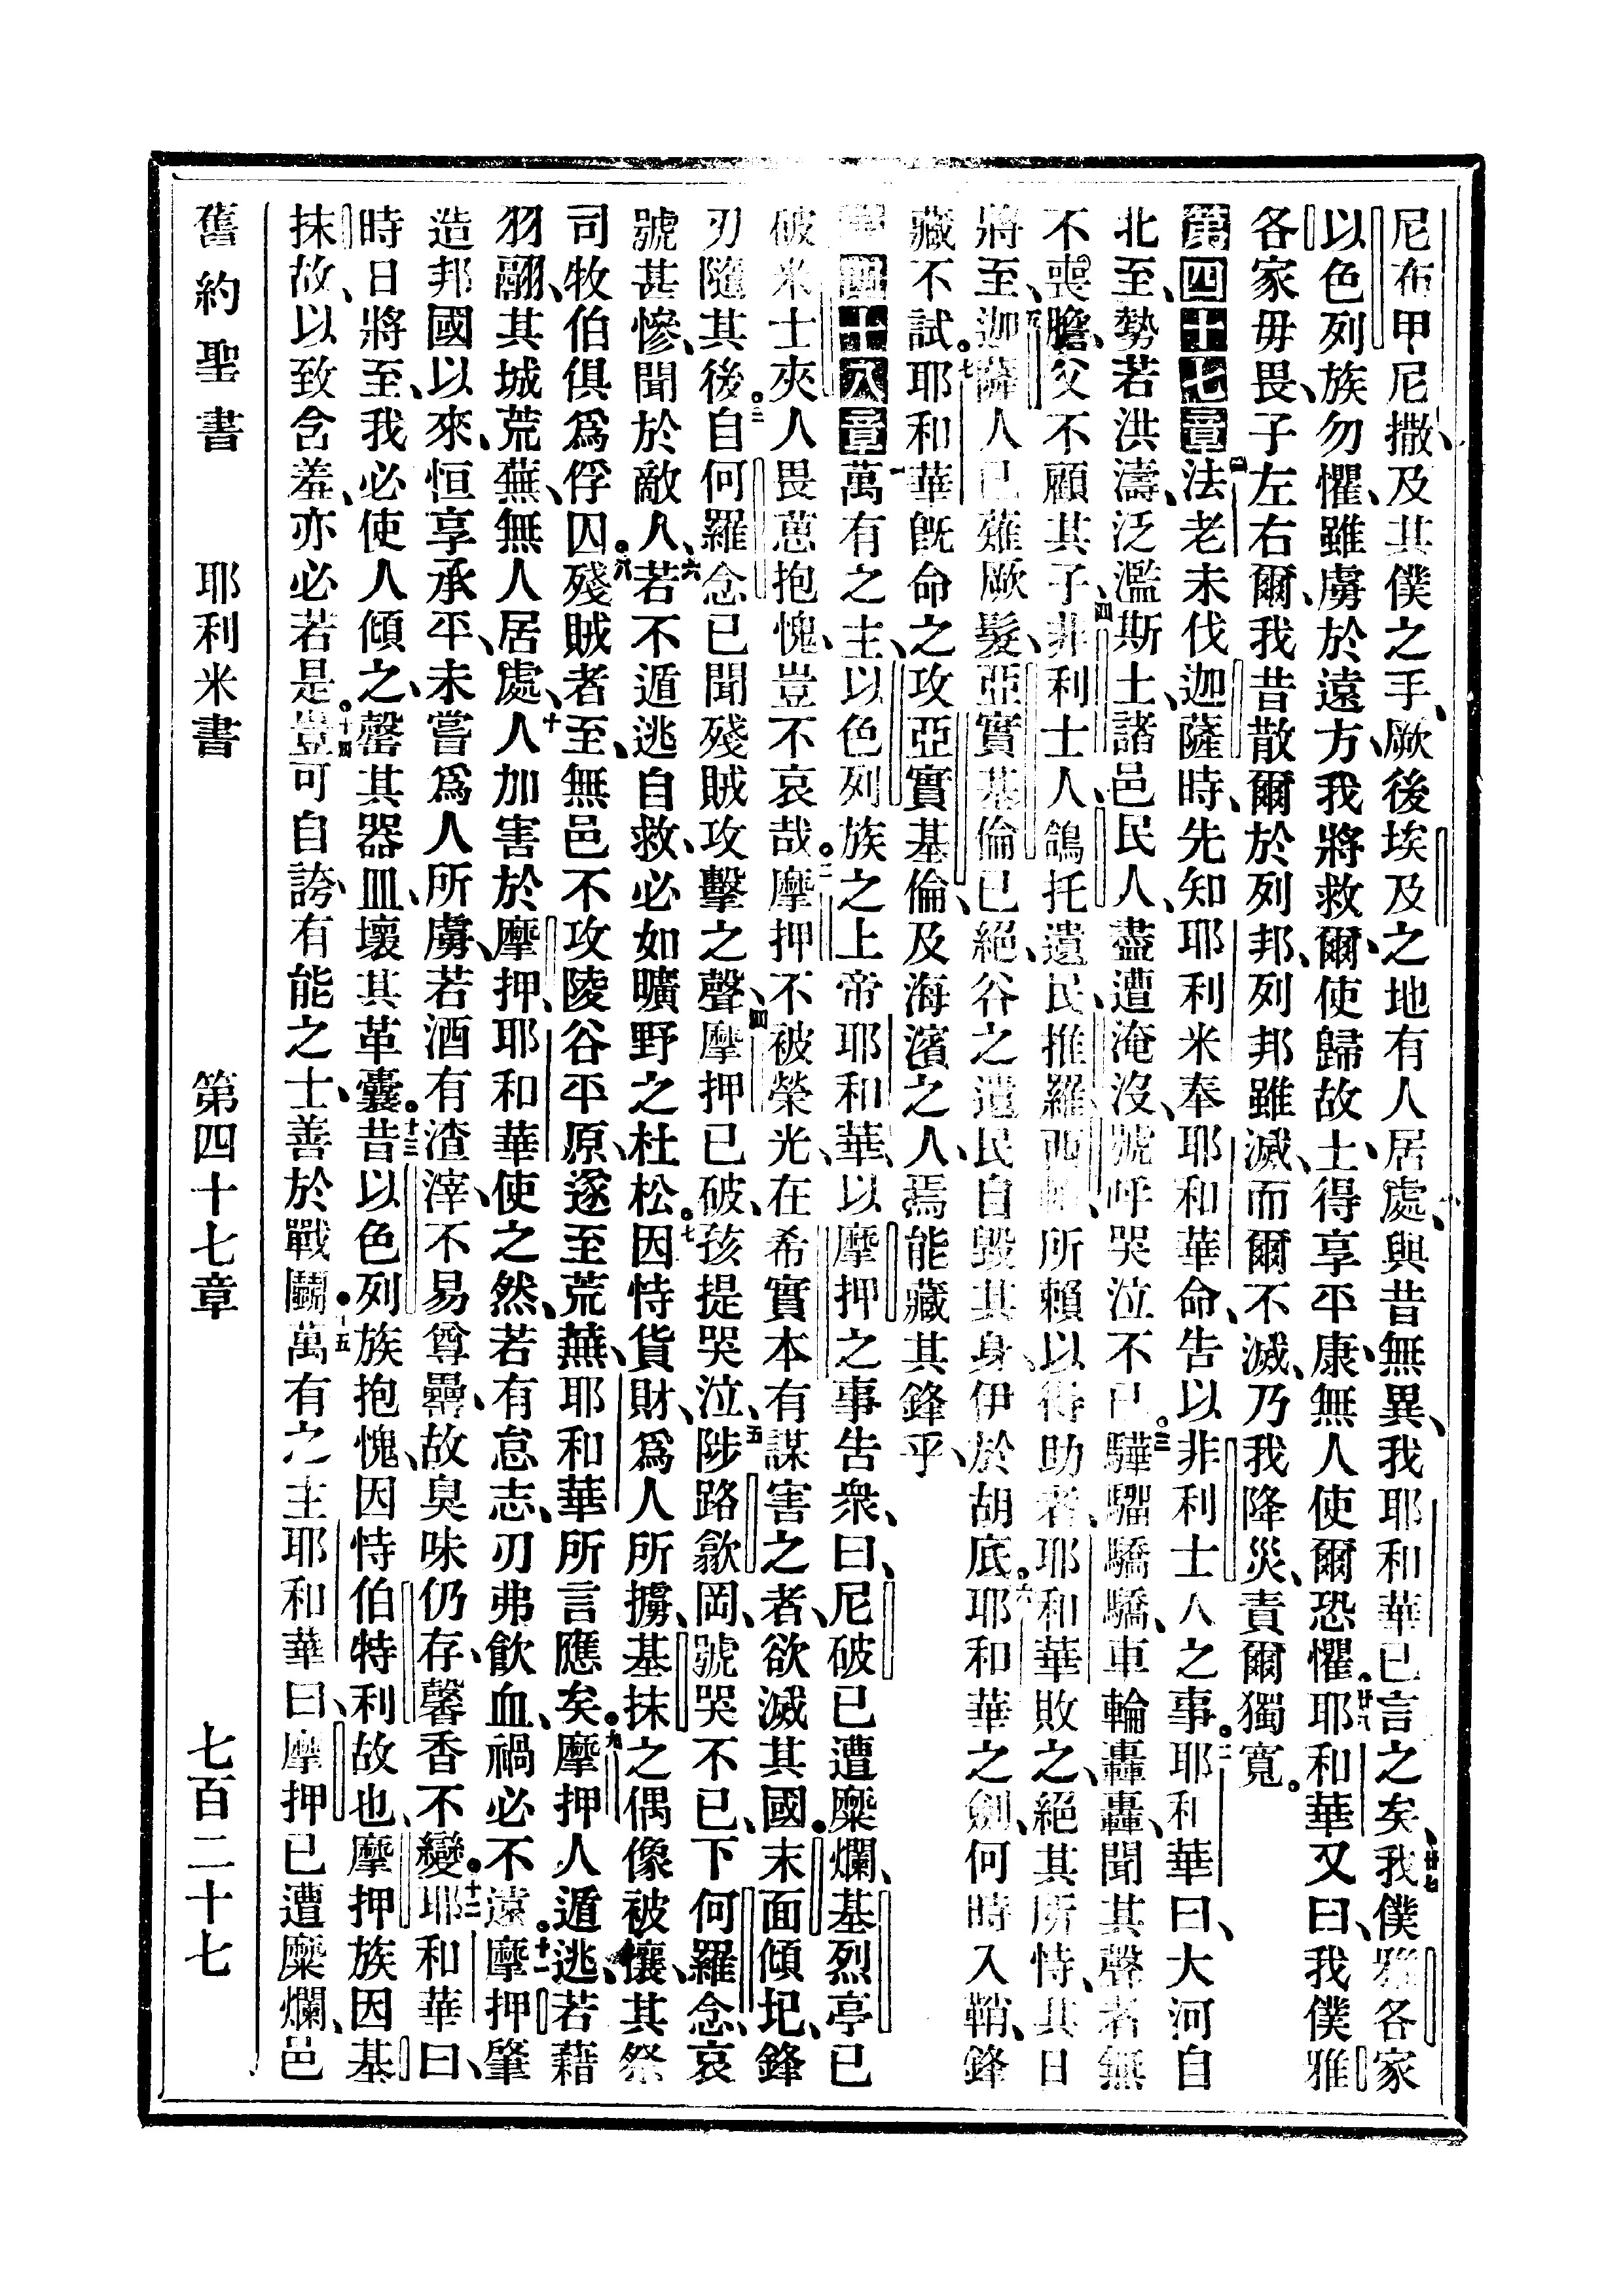 尼布甲尼撒、及其僕之手、厥後埃及之地有人居處、與昔無異、我耶和華已言之矣、廿七我僕雅各家
以色列族勿懼、雖虜於遠方、我將救爾、使歸故土、得享平康、無人使爾恐懼。廿八耶和華又曰、我僕雅
各家毋畏、予左右爾、我昔散爾於列邦、列邦雖滅、而爾不滅、乃我降災、責爾獨寬。
第四十七章一法老未伐迦薩時、先知耶利米奉耶和華命、告以非利士人之事。二耶和華曰、大河自
北至、勢若洪濤、泛濫斯土、諸邑民人、盡遭淹沒、號呼哭泣不已。三驊騮驕驕、車輪轟轟、聞其聲者、無
不喪膽、父不顧其子、四非利士人、鴿托遺民、推羅西頓、所賴以得助者、耶和華敗之、絕其所恃、其日
將至、五迦薩人已薙厥髮、亞實基倫已絕、谷之遺民自毀其身、伊於胡底。六耶和華之劍、何時入鞘、鋒
藏不試。七耶和華旣命之攻亞實基倫、及海濱之人、焉能藏其鋒乎、
第四十八章一萬有之主、以色列族之上帝耶和華、以摩押之事告衆、曰、尼破已遭糜爛、基烈亭已
破、米士夾人畏葸抱愧、豈不哀哉。二摩押不被榮光、在希實本有謀害之者、欲滅其國。末面傾圮、鋒
刃隨其後。三自何羅念已聞殘賊攻擊之聲、四摩押已破、孩提哭泣、五陟路歙岡、號哭不已、下何羅念、哀
號甚慘、聞於敵人、六若不遁逃自救、必如曠野之杜松。七因恃貨財、爲人所擄、基抹之偶像被攘、其祭
司牧伯俱爲俘囚。八殘賊者至、無邑不攻、陵谷平原、遂至荒蕪、耶和華所言應矣。九摩押人遁逃、若藉
羽翮、其城荒蕪、無人居處、十人加害於摩押、耶和華使之然、若有怠志、刃弗飲血、禍必不遠。十一摩押肇
造邦國以來、恒享承平、未嘗爲人所虜、若酒有渣滓、不易尊罍、故臭味仍存、馨香不變。十二耶和華曰、
時日將至、我必使人傾之、罄其器皿、壞其革囊。十三昔以色列族抱愧、因恃伯特利故也、摩押族因基
抹故、以致含羞、亦必若是。十四豈可自誇、有能之士、善於戰鬭。十五萬有之主耶和華曰、摩押已遭糜爛、邑
舊約聖書 耶利米書 第四十七章 七百二十七